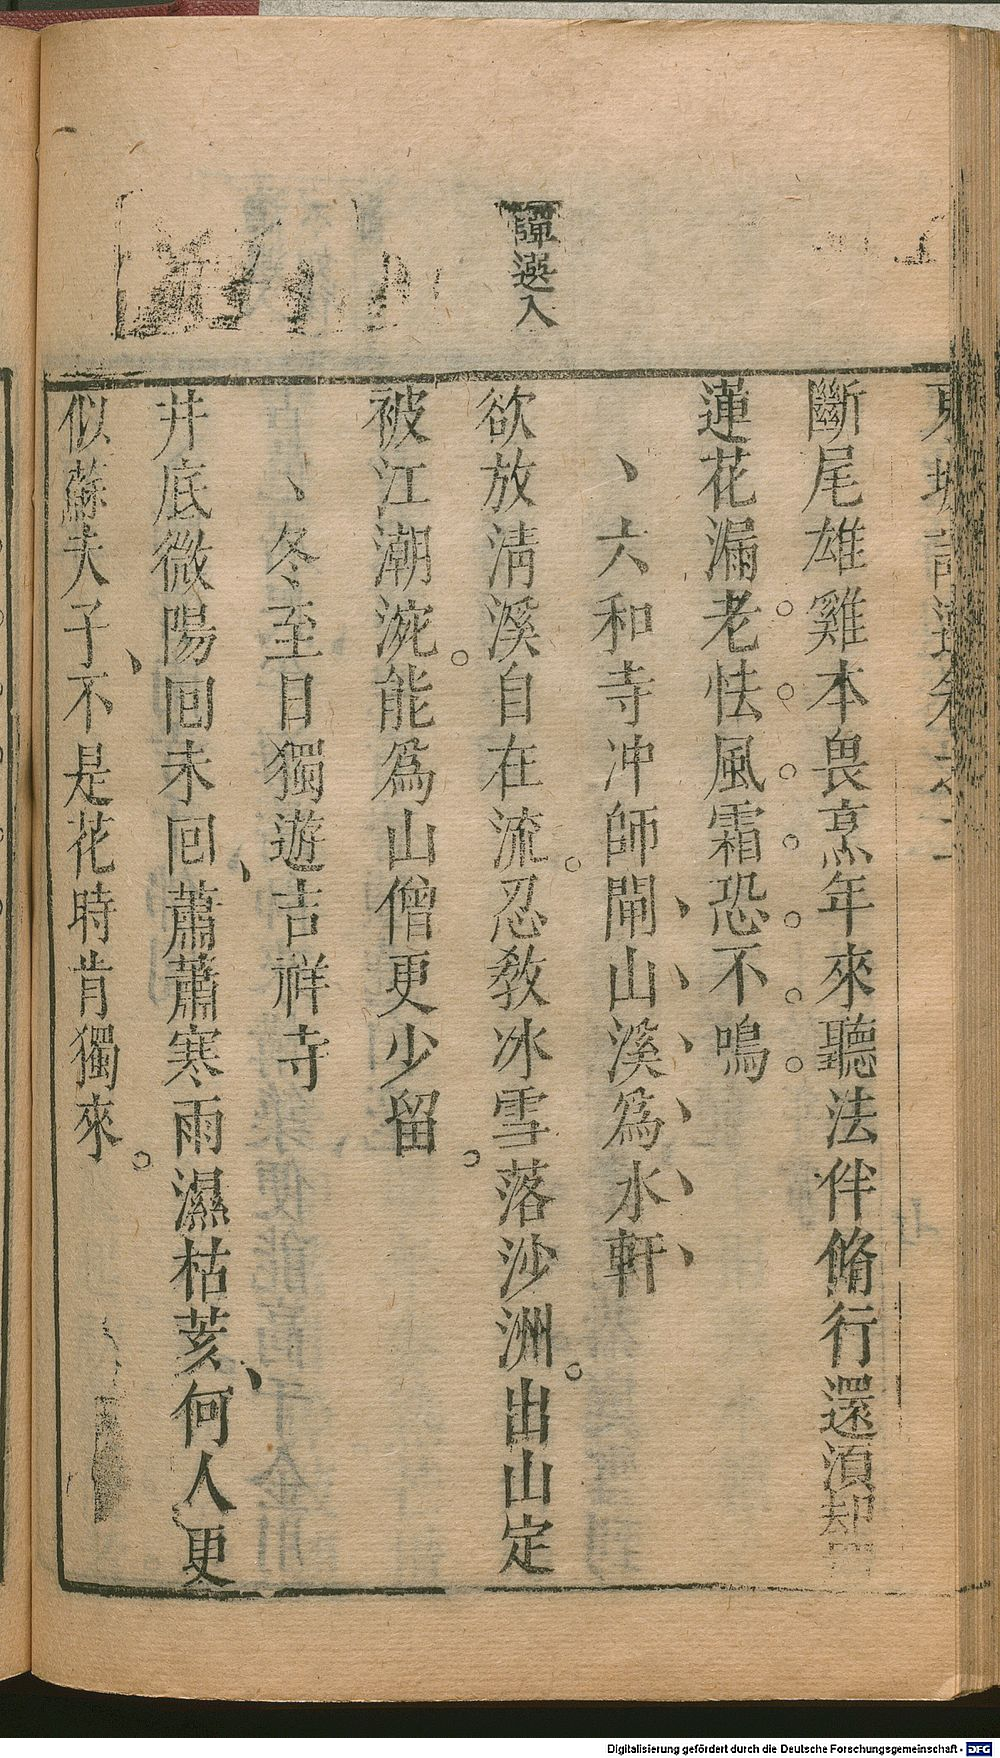 東坡詩選卷之
斷尾雄雞本畏烹年來聽法伴脩行還須却置
蓮花漏老怯風霜恐不鳴
、六和寺冲師閘山溪爲水軒
選入
欲放淸溪自在流忍教冰雪落沙洲出山定
被江潮涴能爲山僧更少留
、冬至日獨遊吉祥寺
井底微陽囘未囘蕭蕭寒雨濕枯荄何人更
似蘇夫子不是花時肯獨來
Digitalisierung gefördert durch die Deutsche Forschungsgemeinschaft - DFG